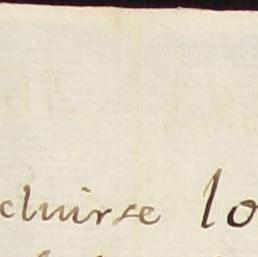 cluirse lo